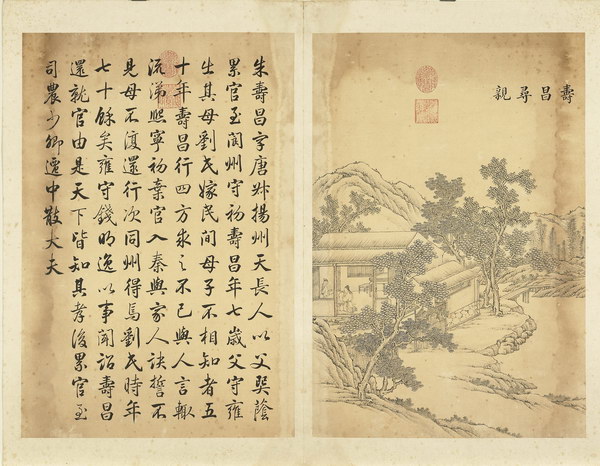 壽昌尋親
朱壽昌字康叔揚州天長人以父巽蔭
累官至閬州守初壽昌年七歲父守雍
出其母劉氏嫁民間母子不相知者五
十年壽昌行四方求之不已與人言輒
流涕熙寧初棄官入秦與家人訣誓不
見母不復還行次同州得焉劉氏時年
七十餘矣雍守錢明逸以事聞詔壽昌
還就官由是天下皆知其孝後累官至
司農少卿遷中散大夫